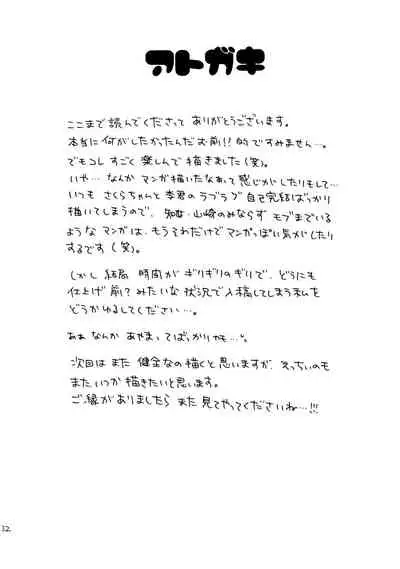 アトガキ
ここまで読んでくださって ありがとうございます。
本当に何がしたかったんだお前!! 的ですみません…。
でもコレ すごく 楽しんで描きました(笑)。
いや… なんか マンガ描いたなあって 感じがしたりもして…
いつも さくらちゃんと 李君のラブラブ 自己完結ばっかり
描いてしまうので、知世・山崎のみならず モブまでいる
ような マンガは、もうそれだけで マンガっぽい気がしたり
するです(笑)。
しかし 結局 時間が ギリギリのぎりで、どうにも
仕上げ前? みたいな 状況で入稿してしまう私を
どうかゆるしてください…。
ああ なんか あやまってばっかりかも…。
次回は また 健全なの描くと思いますが、えっちぃのも
またいつか 描きたいと思います。
ご縁がありましたら また 見てやってくださいね…!!!
32